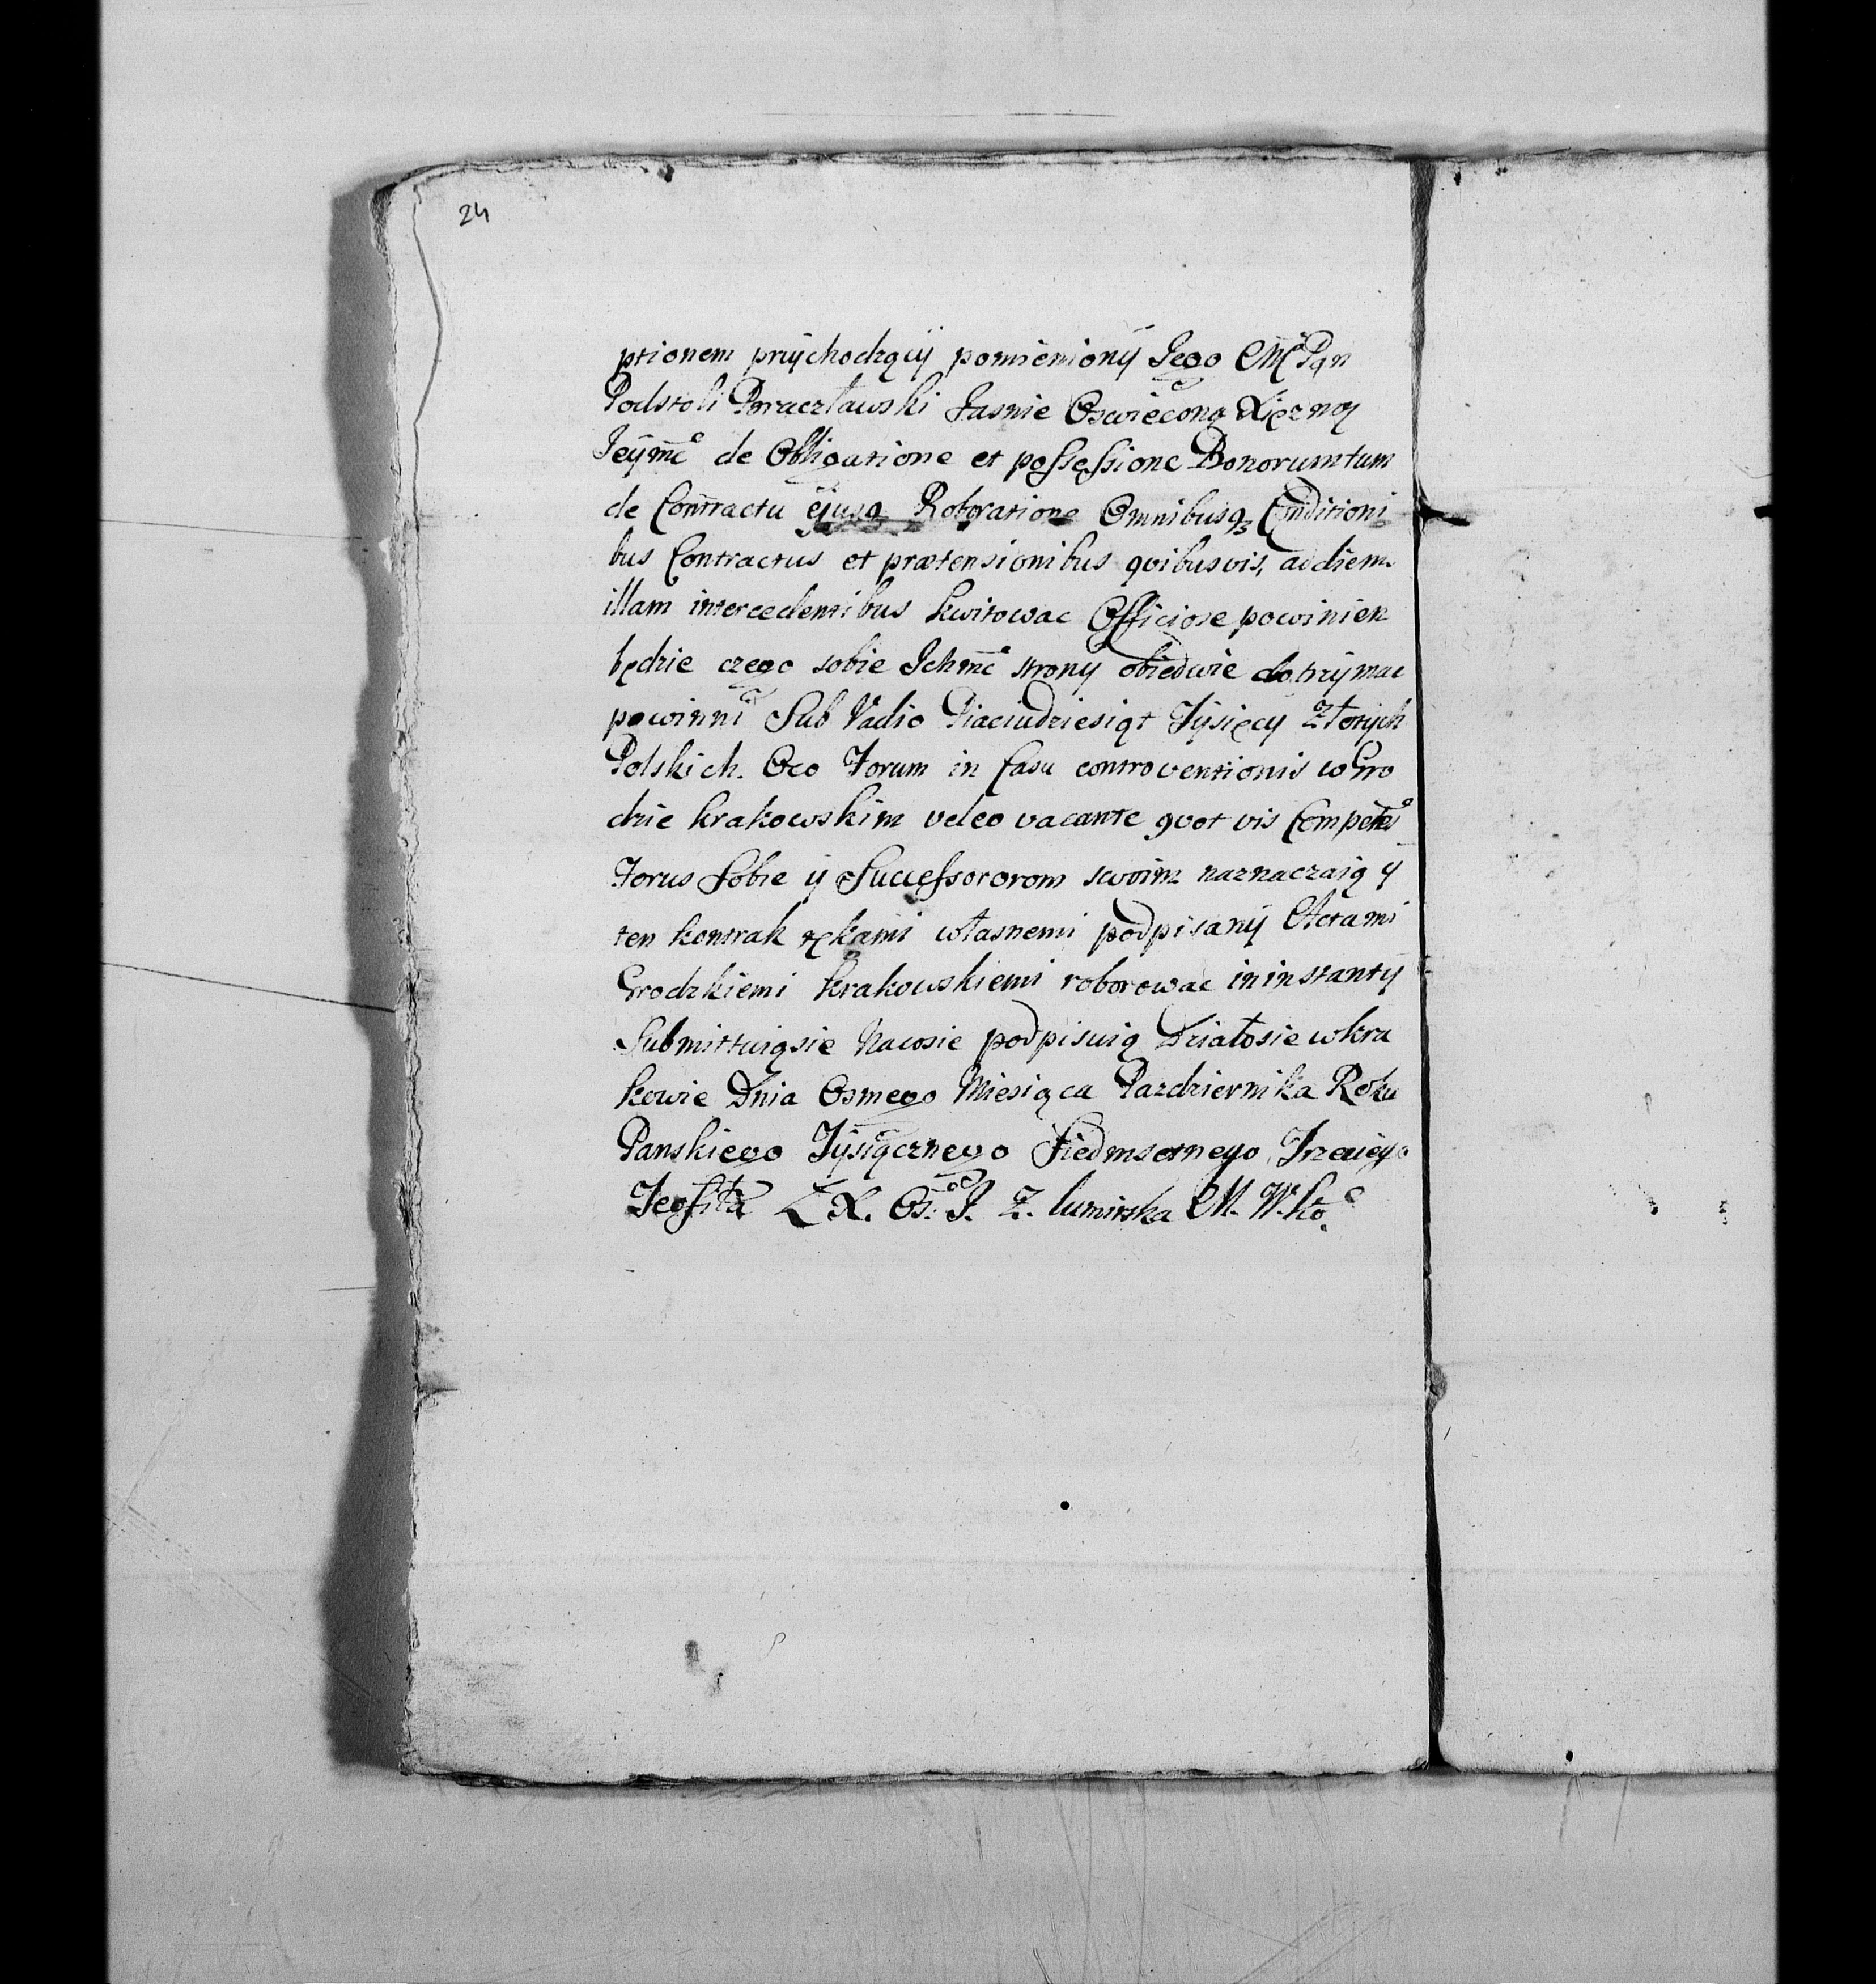 24
ptionem przychodzący pomieniony Jego Mć Pąn
Podstoli Bracztawski Jasnie Oswiecong Xięzną
Jeymć de Obligatione et possessione Bonorum tum
de Contractu ejusq Roboratione Omnibusqz Conditioni
bus Contractus et prætensionibus qvibusvis, ad diem
illam intercedentibus kwitowac Officiose powinien
będzie czego sobie Ichmć strony obiedwie dotrzymac
powinni Sub Vadio Piaciudziesiąt Tysięcy Złotych
Polskich. Oco Forum in Casu controventionis w Gro
dzie krakowskim veleo vacante qvot vis Competes
Forus Sobie y Successororom swoim naznaczaią y
ten kontrak rękami własnemi podpisany Actami
Grodzkiemi krakowskiemi roborowac in instanty
Submittuiąsie Nacosie podpisuią Działosie wkra
kowie Dnia Osmego Miesiąca Pazdziernika Roku
Panskiego Tysiącznego Siedmsetnego Trzeciego
Teofila Z X. Os. J. Z. lumirska M. W. ko.